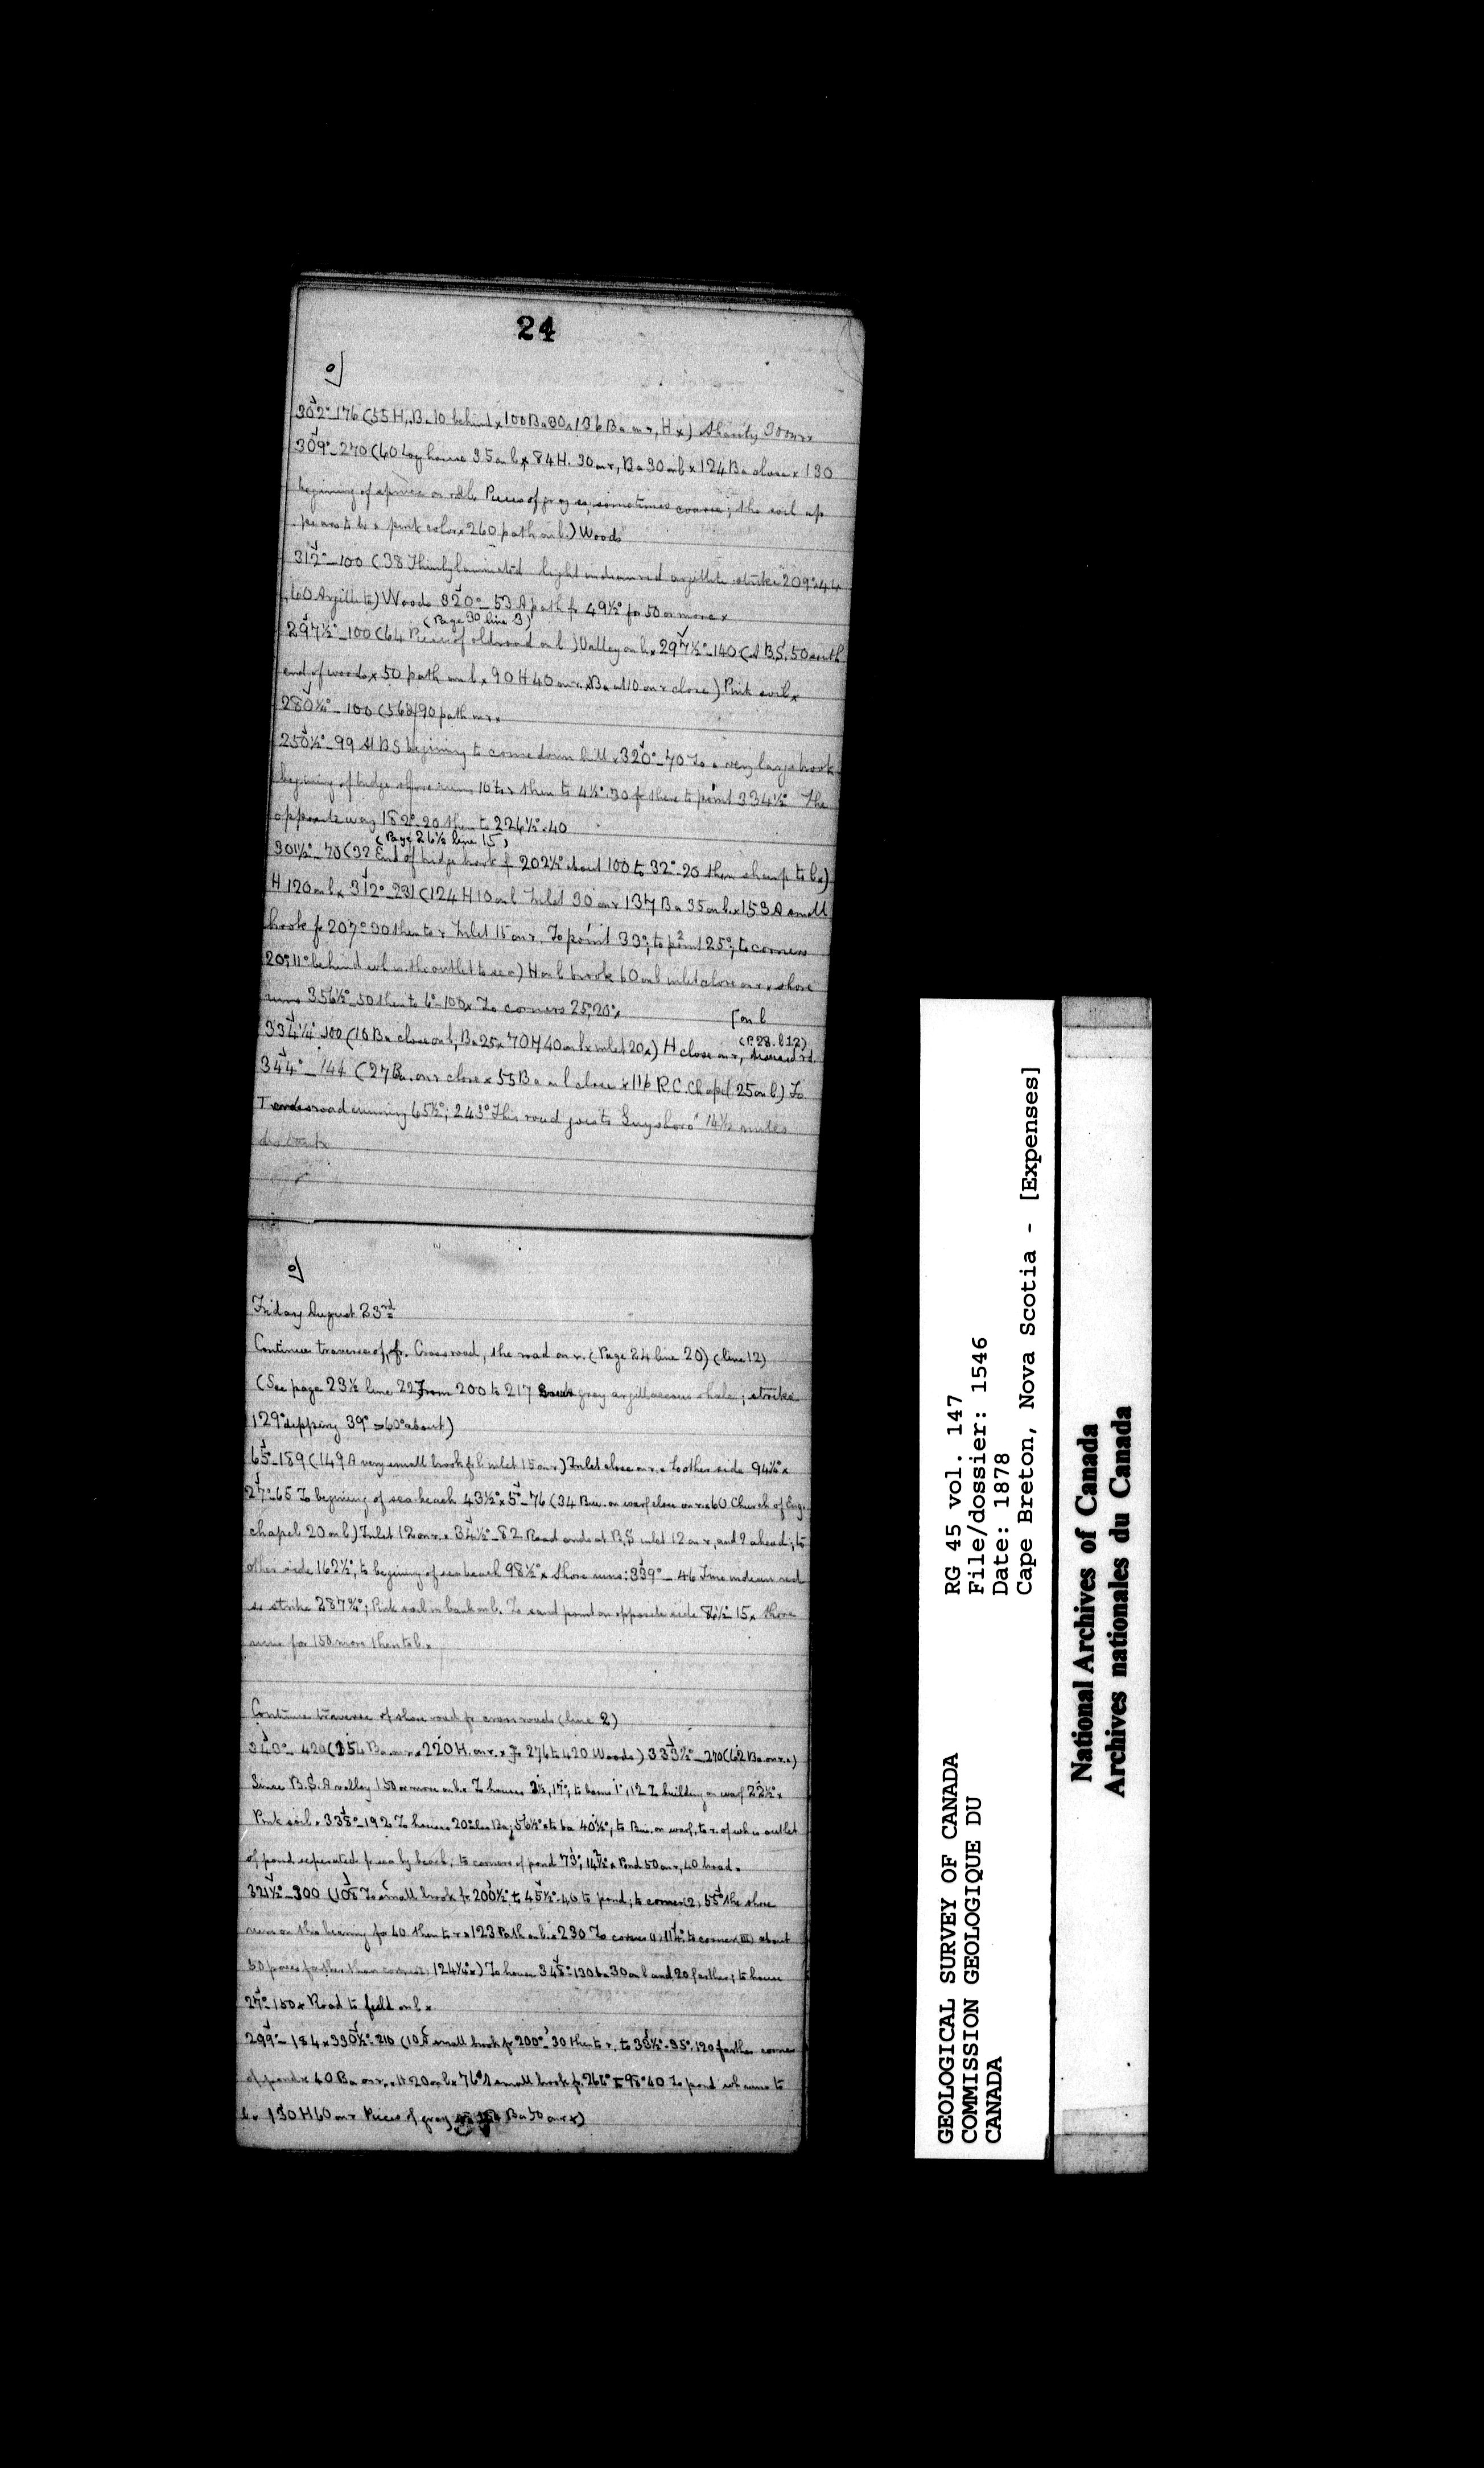 24
302°-176 (55 H, Ba 10 behind x 100 Ba 30 x 136 Ba on r, H x) Shanty 30 on r x
309°-270 (40 Log house 35 on l x 84 H. 30 on r, Ba 30 on l x 124 Ba close x 130
begining of spruce on r & l. Pieces of gray ss, sometimes coarse; the soil ap
pears to be a pink color x 260 path on l.) Woods
312°-100 (38 Thinly laminated light indian red argillite strike 209° 44
60 Argillite) Woods 320°-53 A path fr 49½° for 50 or more x
(Page 30 line 3)
297½°-100 (64 Pieces of old road on l) Valley on l x 297½°-140 (At B.S. 50 south
end of woods x 50 path on l x 90 H 40 on r x Ba at 10 on r close) Pink soil x
280¼°-100 (56 90 path on r x
250½°-99 At BS begining to come down hill x 320°-70 To a very large brook
begining of bridge shore runs 10 to r then to 4½°-30 fr there to point 334½° The
opposite way 182°-20 then to 224½°-40
(Page 26½ line 15)
301½°-70 (32 End of bridge brook fr 202½° about 100 to 32°-20 then sharp to l x)
H 120 on l x 312°-231 (124 H 10 on l Inlet 30 on r 137 Ba 35 on l x 153 A small
brook fr 207° 30 then to r Inlet 15 on r. To point 33°; to point 2 125°; to corners
20°; 11° behind wh is the outlet to sea) H on l brook 60 on l inlet close on r x shore
runs 356½°-50 then to 6°-100 x To corners 25°, 20° x
[on l
(P. 28. l 12)
334¼°-100 (10 Ba close on l, Ba 25 x 70 H 40 on l x inlet 20 x) H close on r,
344°-144 (27 Ba on r close x 55 Ba on l close x 116 R.C. Chapel 25 on l) To
road running 65½°; 243° This road goes to Guysboro' 14½ miles
distant x
Friday August 23rd
Continue traverse of, fr. Cross road, the road on r. (Page 24 line 20) (line 12)
(See page 23½ line 22 From 200 to 217 gray argillaceous shale; strike
129° dipping 39° > 60° about)
65°-189 (149 A very small brook fr l inlet 15 on r) Inlet close on r. x To other side 94½° x
27°-65 To begining of sea beach 43½° x 5°-76 (34 Bui. on warf close on r x 60 Church of Eng.
chapel 20 on l) Inlet 12 on r. x 34½°-82 Road ends at B.S. inlet 12 on r, and 9 ahead; to
other side 162½°, to begining of sea beach 98½° x Shore runs: 339°-46 Fine indian red
ss strike 287¾°; Pink soil in bank on l. To sand point on opposite side 15 x Shore
runs for 150 more then to l. x
Continue traverse of shore road fr cross roads (line 2)
343°-420 (154 Ba on r x 220 H. on r. x Fr 276 to 420 Woods) 333½°-270 (62 Ba on r. x)
Since B.S. A valley 150 or more on l x To houses 2½, 17°; to barns 1°, 12 To building on warf 22½° x
Pink soil. 338°-192 To houses 20° 56½° to ba 40½°; to Bui. on warf, to r. of wh is outlet
of pond seperated fr sea by beach; to corners of pond 73°, 14½° x Pond 50 on r, 40 broad.
321½°-300 (108 To small brook fr 200½° to 45½°-46 to pond; to corner 2, 55° the shore
runs on this bearing for 40 then to r x 123 Path on l. x 230 To corner (1) 11½° to corner (III) about
50 paces farther than corner 124¼° x) To house 348°-130 ba 30 on l and 20 farther; to house
27°-150 x Road to field on l x
299°-184 x 330½°-210 (10 small brook fr 200°-30 then to r. to 38½°-35°-120 farther corner
of pond x 40 Ba on r. x H 20 on l x 76 A small brook fr. 266° to 98° 40 To pond wh runs to
130 H 60 on r Pieces of gray Ba 50 on r x)
GEOLOGICAL SURVEY OF CANADA
COMMISSION GEOLOGIQUE DU
CANADA
RG 45 vol. 147
File/dossier: 1546
Date: 1878
Cape Breton, Nova Scotia - [Expenses]
National Archives of Canada
Archives nationales du Canada